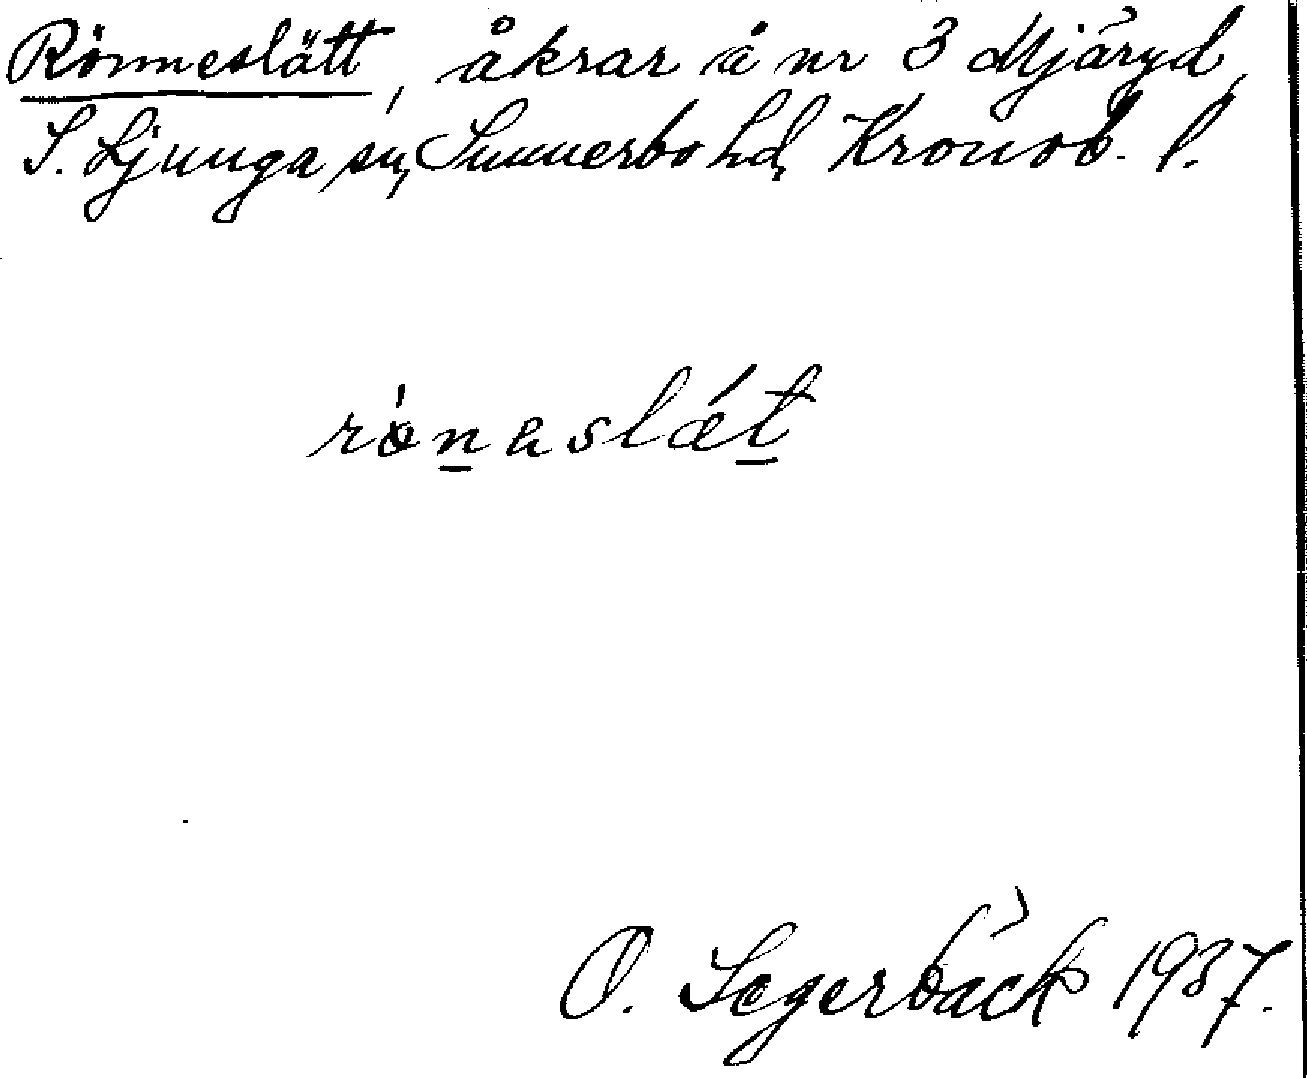 Rönneslätt, åkrar å nr 3 Mjäryd,
S. Ljunga sn, Sunnerbo hd, Kronob. l.
rònaslǽt
O. Segerbäck 1937.